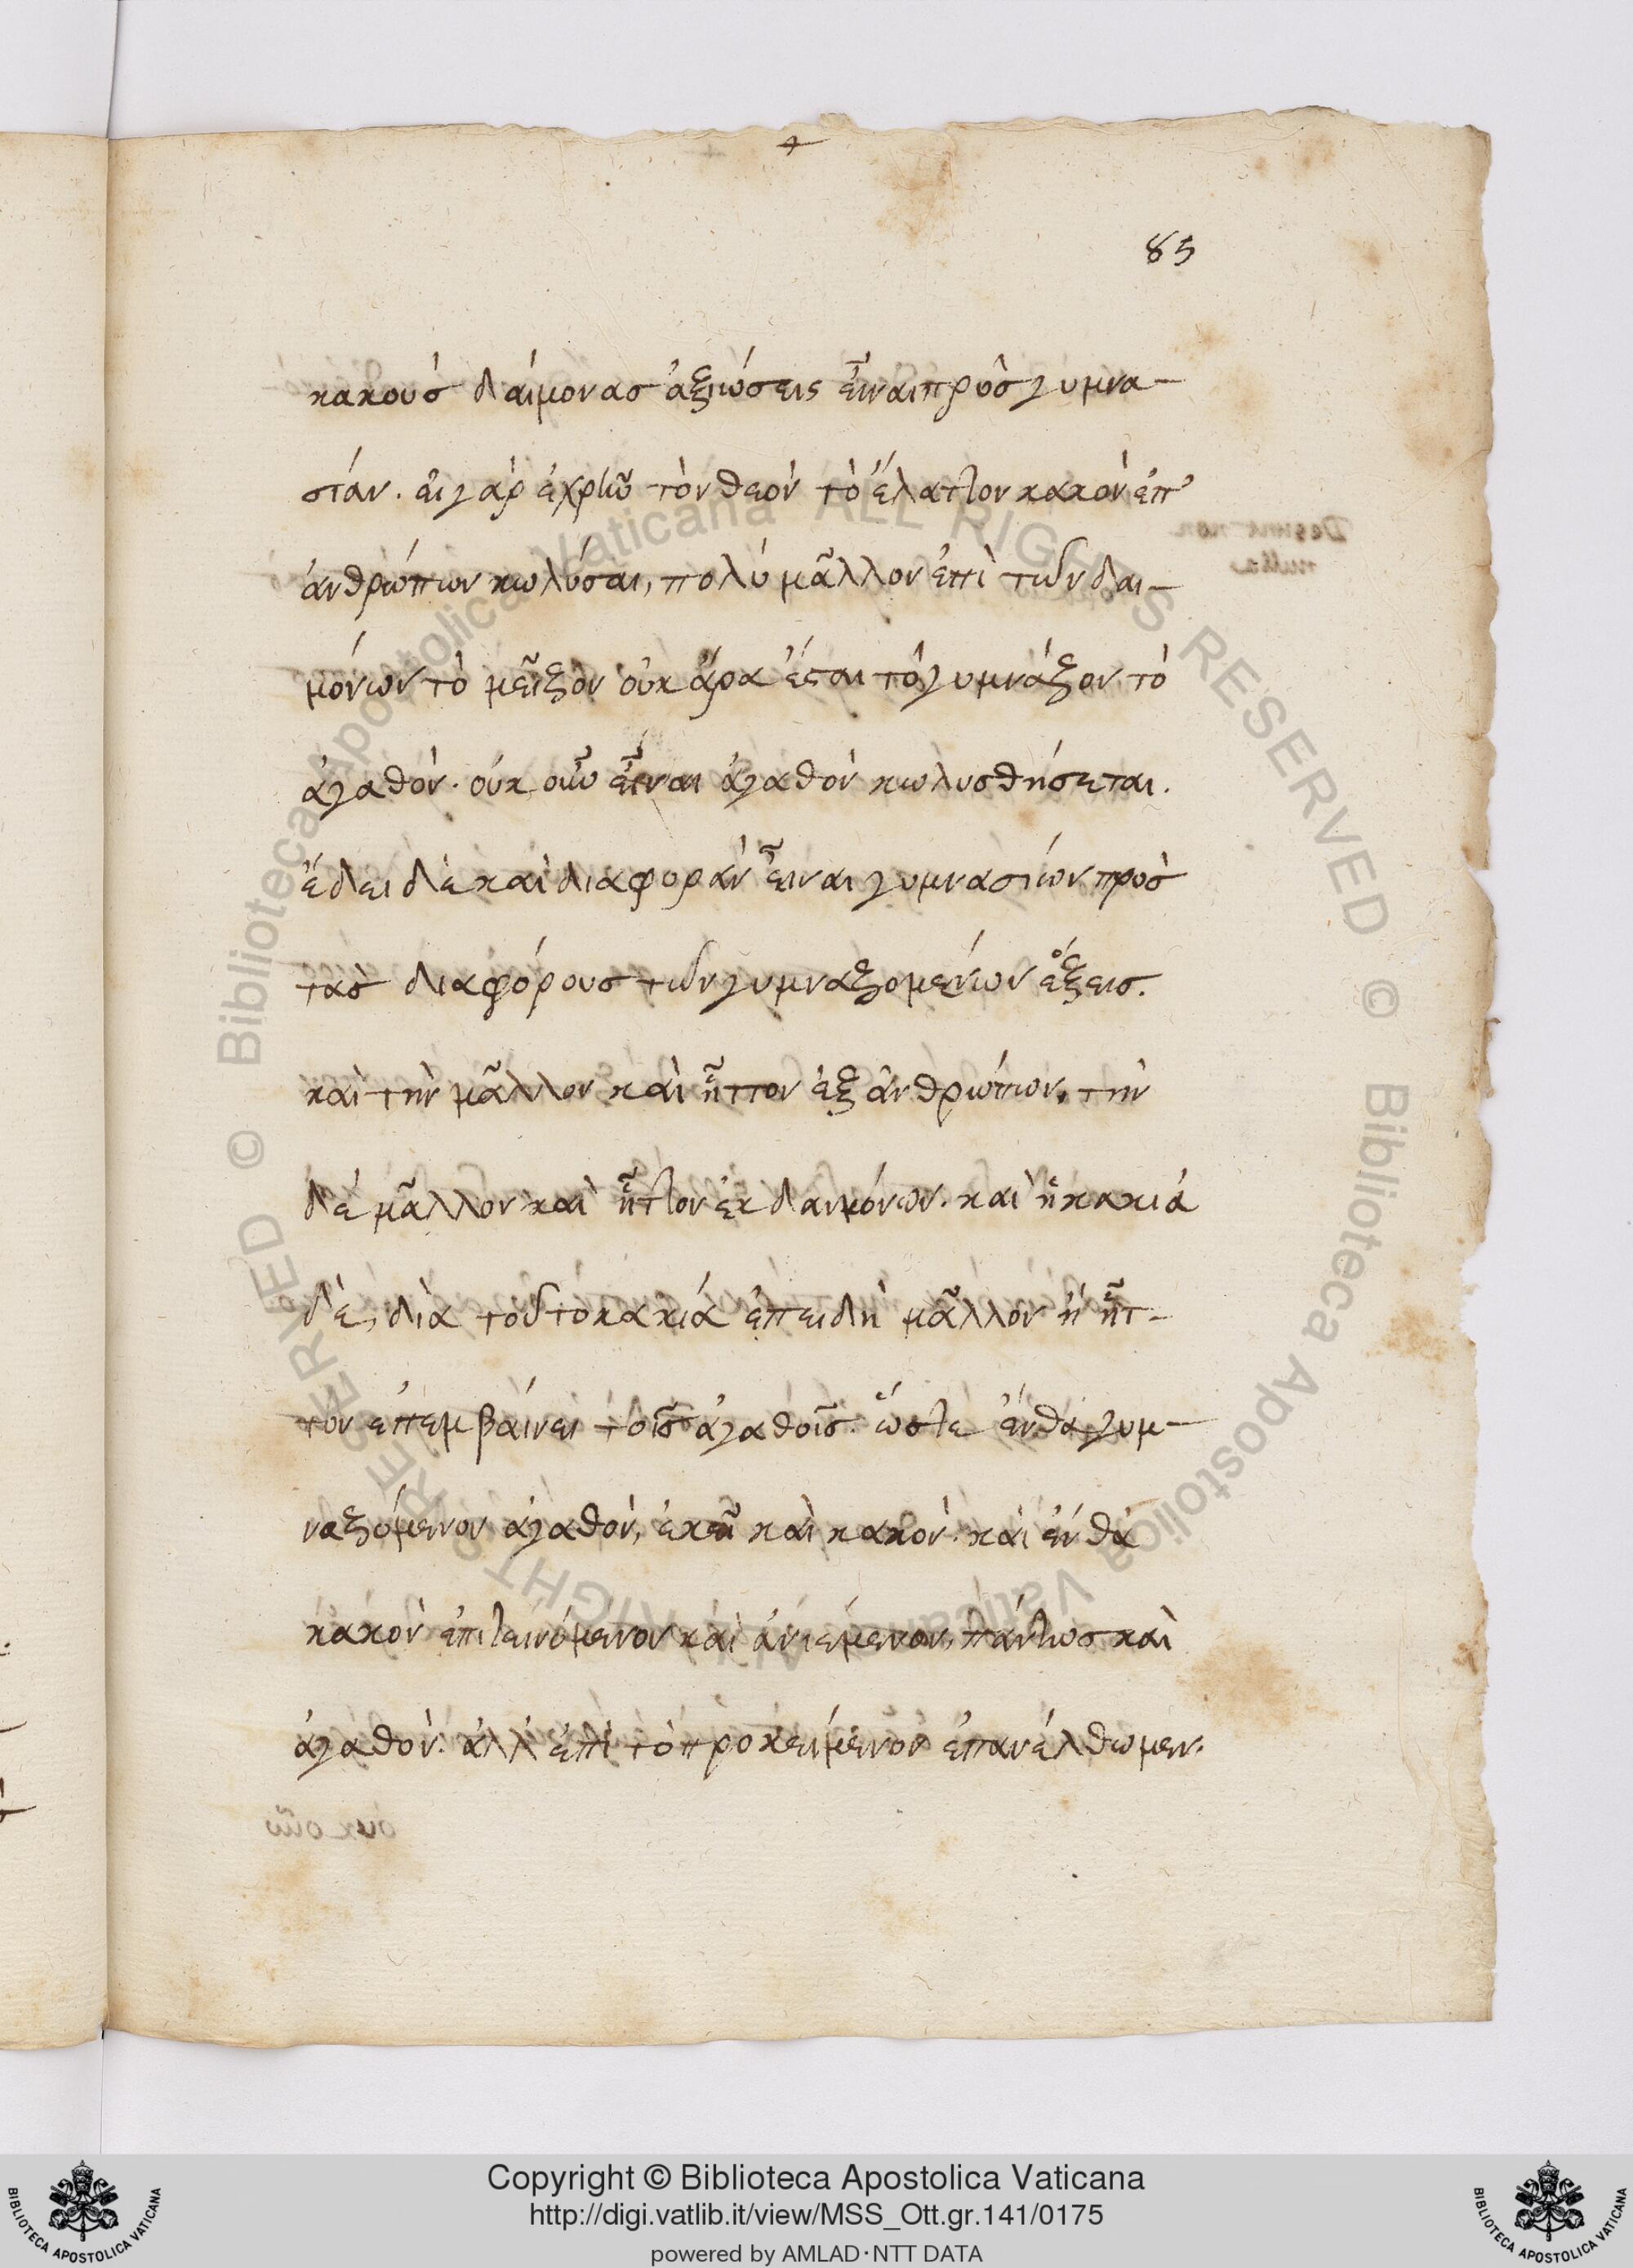 +
85
κακοὺσ δαίμονασ ἀξιώσεις εἶναι πρὸσ γυμνα-
σίαν. εἰ γὰρ ἐχρῆν τὸν θεὸν τὸ ἔλαττον κακὸν ἐπ'
ἀνθρώπων κωλύσαι, πολὺ μᾶλλον ἐπὶ τῶν δαι-
μόνων τὸ μεῖζον οὐκ ἄρα ἔσται τὸ γυμνάζον τὸ
ἀγαθόν. οὐκ οὖν εἶναι ἀγαθὸν κωλυσθήσεται.
ἔδει δὲ καὶ διαφορὰν εἶναι γυμνασίων πρὸσ
τὰσ διαφόρουσ τῶν γυμναζομένων ἕξεισ.
καὶ τὴν μᾶλλον καὶ ἧττον ἐξ ἀνθρώπων, τὴν
δὲ μᾶλλον καὶ ἧττον ἐκ δαιμόνων. καὶ ἡ κακιά
δὲ, διὰ τοῦτο κακιά ἐπειδὴ μᾶλλον ἢ ἧτ-
τον ἐπεμβαίνει τοῖσ ἀγαθοῖσ. ὥστε ἔνθα γυμ-
ναζόμενον ἀγαθόν, ἐκεῖ καὶ κακόν. καὶ ἔνθα
κακὸν ἐπιτεινόμενον καὶ ἀνιέμενον, πάντωσ καὶ
ἀγαθόν. ἀλλ' ἐπὶ τὸ προκείμενον ἐπανέλθωμεν.
Copyright © Biblioteca Apostolica Vaticana
http://digi.vatlib.it/view/MSS_Ott.gr.141/0175
powered by AMLAD·NTT DATA
BIBLIOTECA APOSTOLICA VATICANA
BIBLIOTECA APOSTOLICA VATICANA